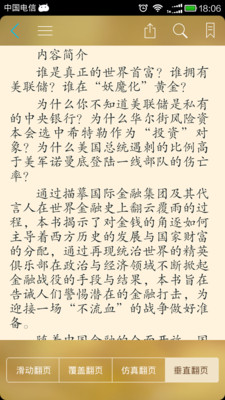 中国电信 18:06
内容简介
谁是真正的世界首富？谁拥有
美联储？谁在“妖魔化”黄金？
为什么你不知道美联储是私有
的中央银行？为什么华尔街风险资
本会选中希特勒作为“投资”对
象？为什么美国总统遇刺的比例高
于美军诺曼底登陆一线部队的伤亡
率？
通过描摹国际金融集团及其代
言人在世界金融史上翻云覆雨的过
程，本书揭示了对金钱的角逐如何
主导着西方历史的发展与国家财富
的分配，通过再现统治世界的精英
俱乐部在政治与经济领域不断掀起
金融战役的手段与结果，本书旨在
告诫人们警惕潜在的金融打击，为
迎接一场“不流血”的战争做好准
备。
滑动翻页 覆盖翻页 仿真翻页 垂直翻页